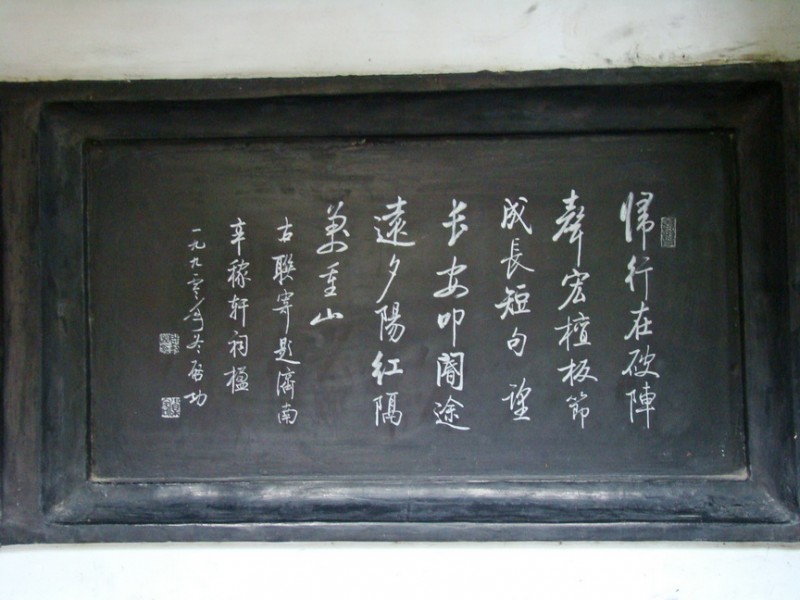 歸行在破陣
聲宏檀板節
成長短句望
長安叩閽途
遠夕陽紅隔
萬重山
古聯寄題濟南
辛稼軒祠楹
一九九零年冬啟功